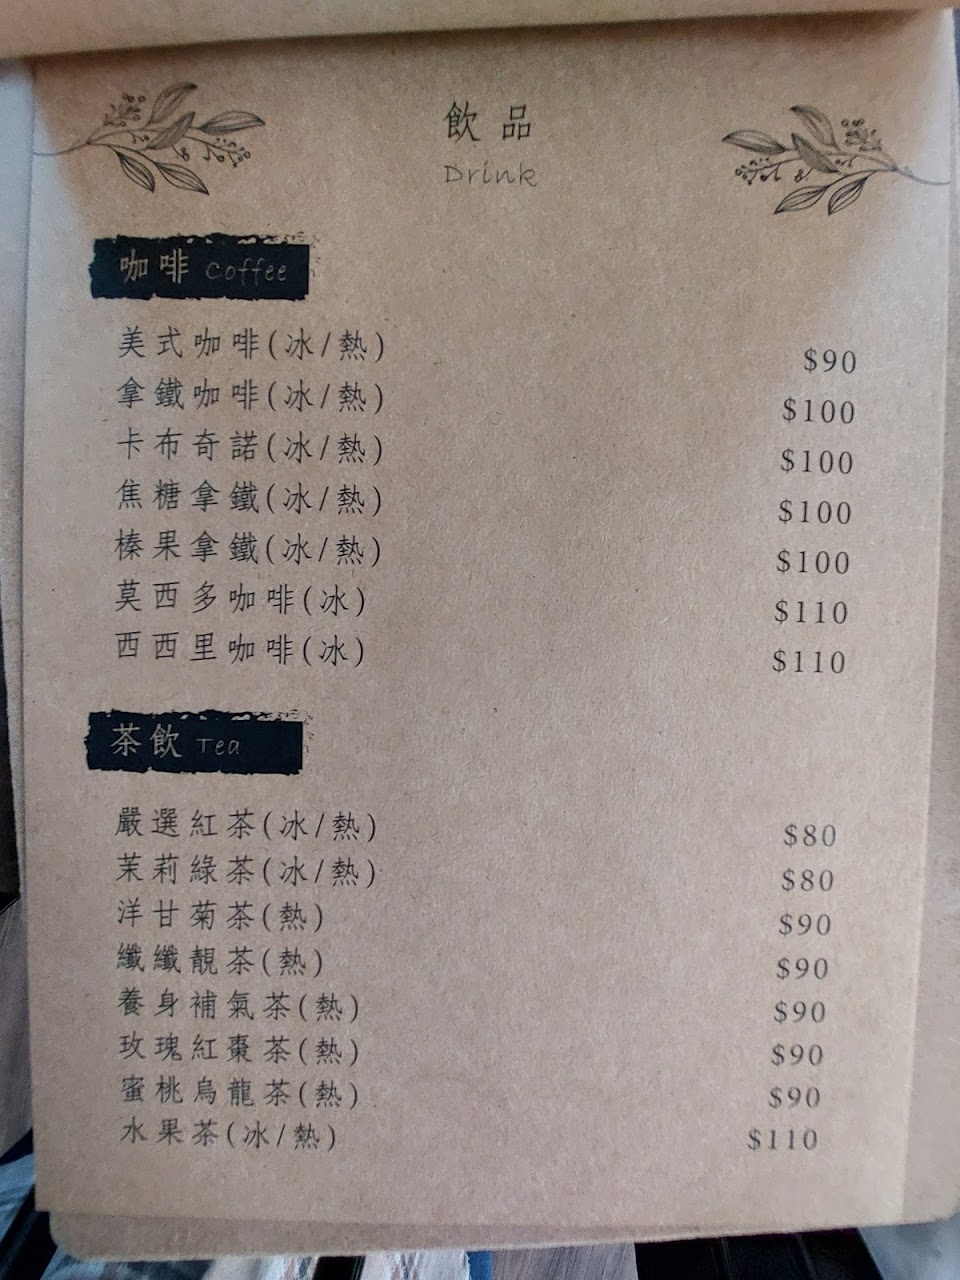 飲品
Drink
咖啡 Coffee
美式咖啡(冰/熱) $90
拿鐵咖啡(冰/熱) $100
卡布奇諾(冰/熱) $100
焦糖拿鐵(冰/熱) $100
榛果拿鐵(冰/熱) $100
莫西多咖啡(冰) $110
西西里咖啡(冰) $110
茶飲 Tea
嚴選紅茶(冰/熱) $80
茉莉綠茶(冰/熱) $80
洋甘菊茶(熱) $90
纖纖靚茶(熱) $90
養身補氣茶(熱) $90
玫瑰紅棗茶(熱) $90
蜜桃烏龍茶(熱) $90
水果茶(冰/熱) $110